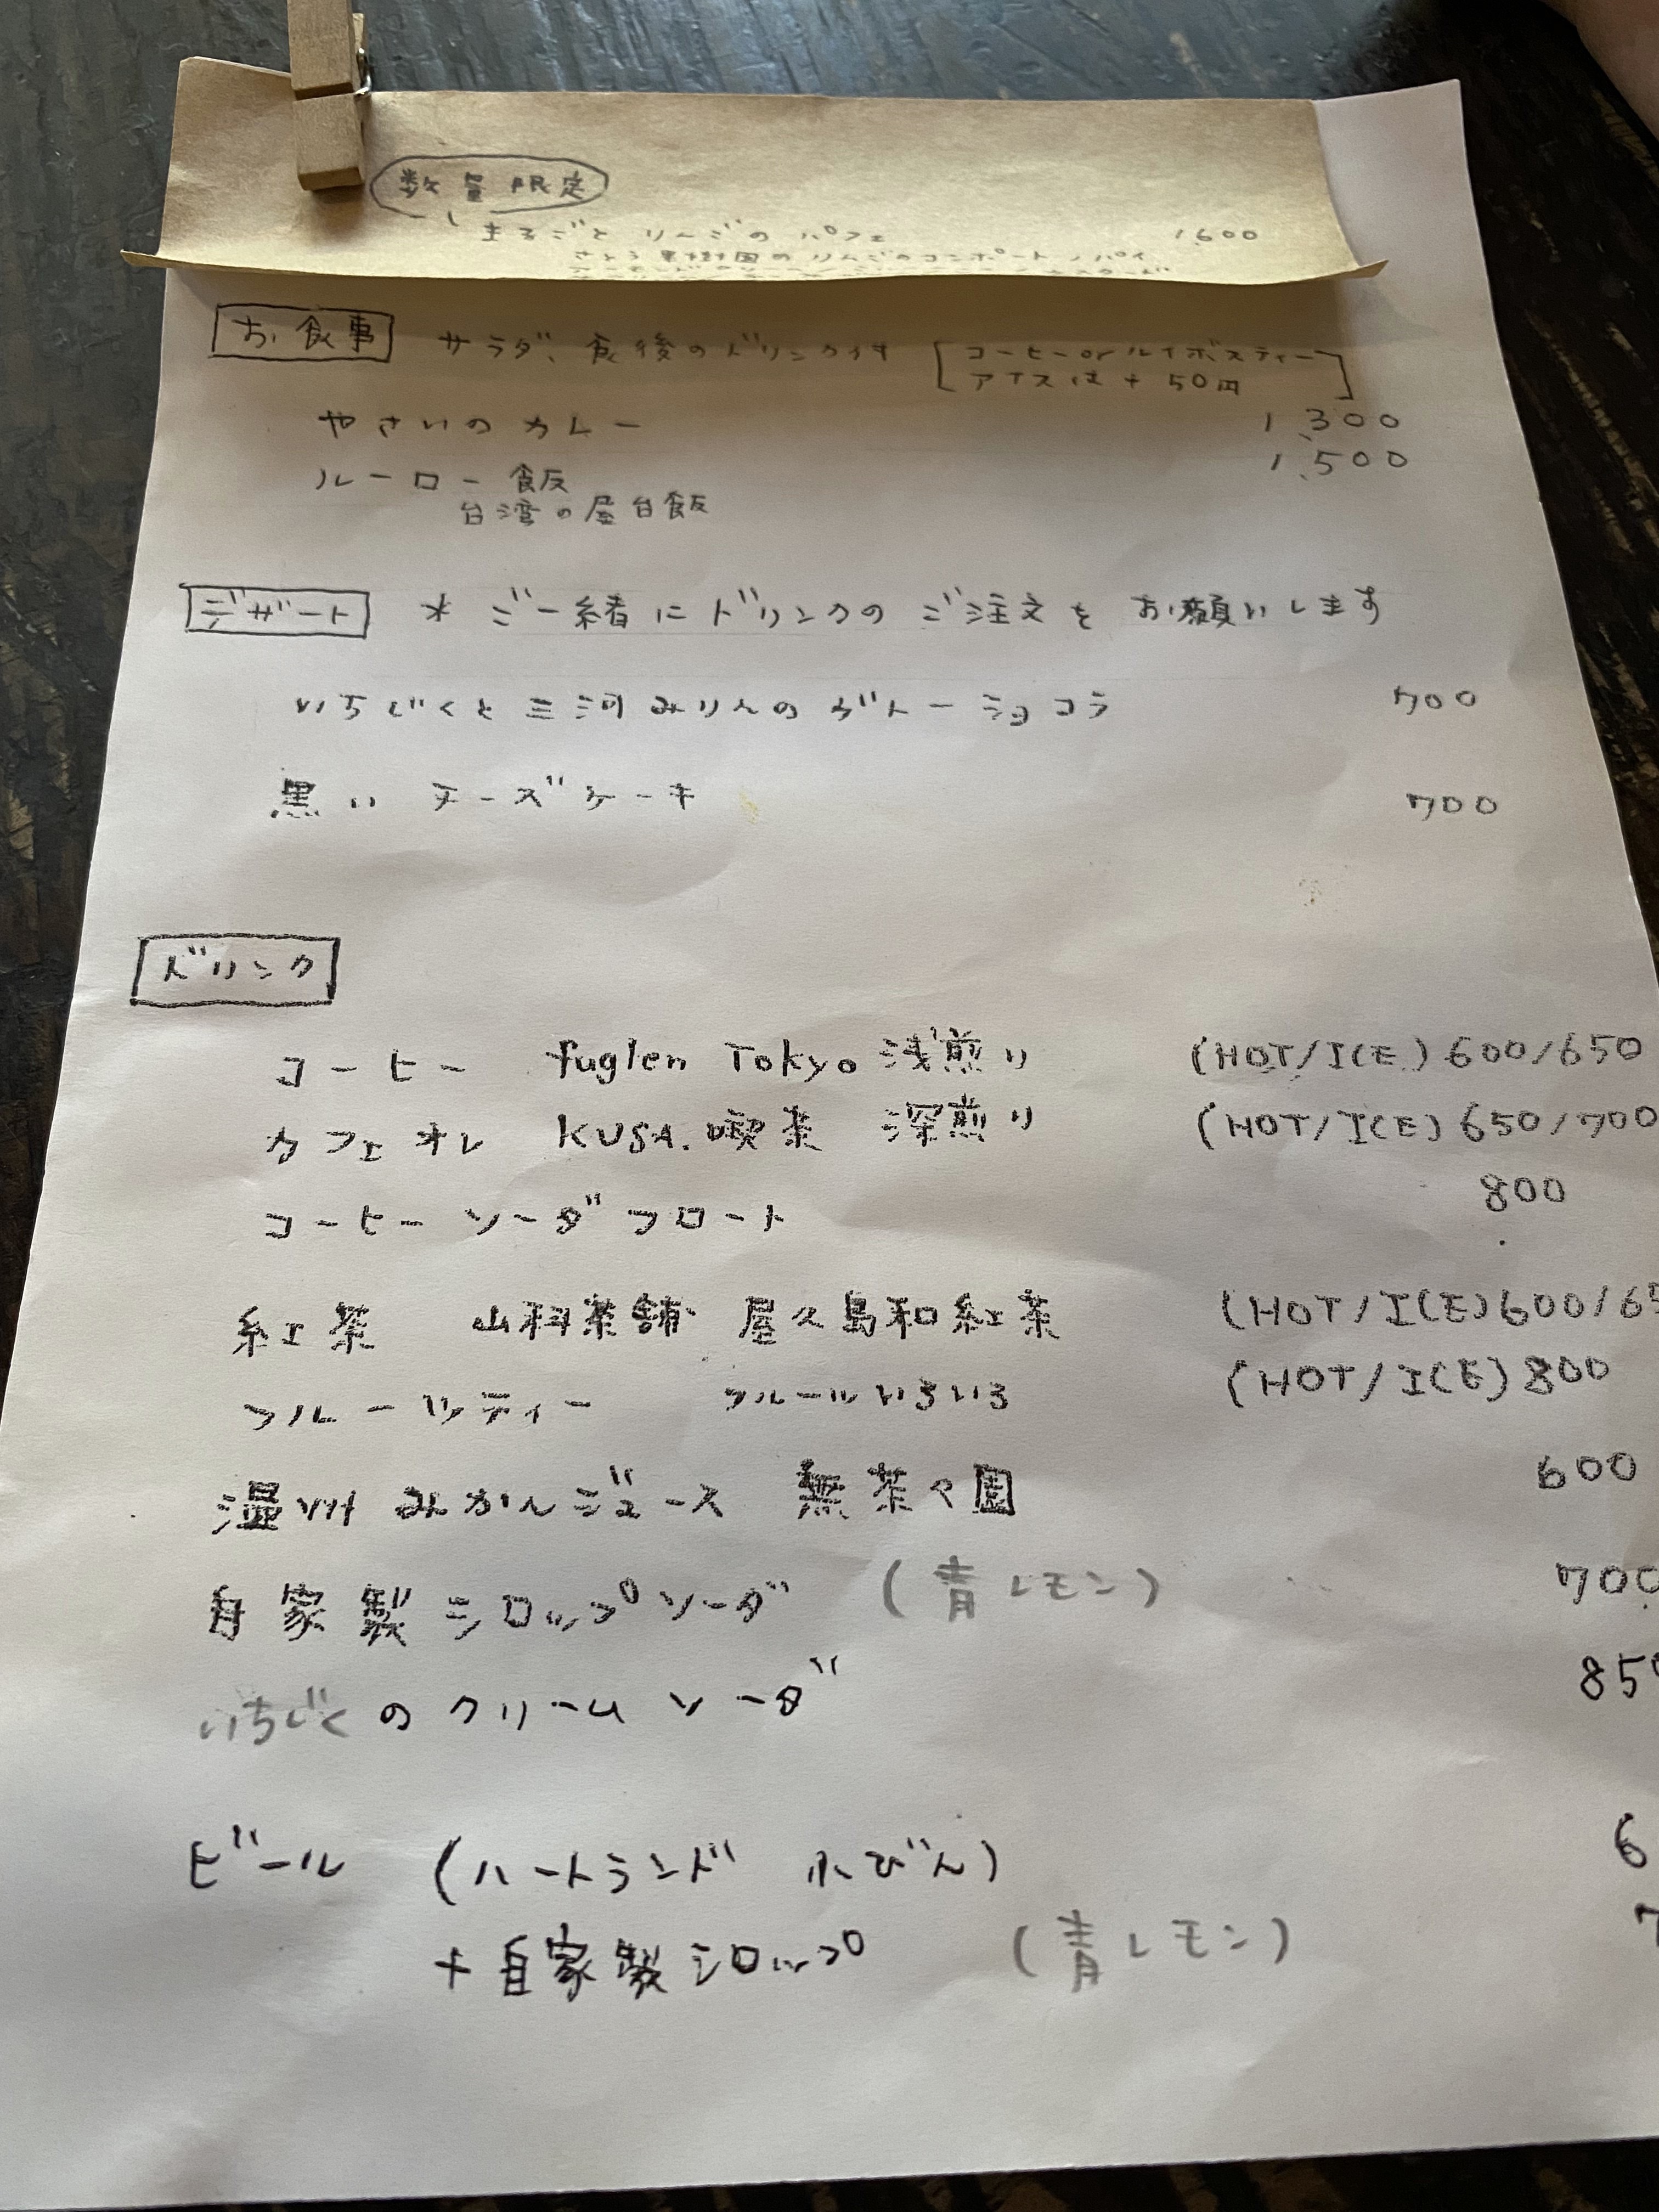 数量限定
まるごと りんごの パフェ 1,600
さとう果樹園の りんごのコンポート / パイ
お食事 サラダ、食後のドリンク付 [コーヒー or ルイボスティー
アイスは + 50円]
やさいの カレー 1,300
ルーロー飯 1,500
台湾の屋台飯
デザート * ご一緒に ドリンクの ご注文を お願いします
いちじくと 三河みりんの ガトーショコラ 700
黒い チーズケーキ 700
ドリンク
コーヒー fuglen Tokyo 浅煎り (HOT/ICE) 600/650
カフェオレ KUSA. 喫茶 深煎り (HOT/ICE) 650/700
コーヒー ソーダ フロート 800
紅茶 山科茶舗 屋久島和紅茶 (HOT/ICE) 600/65
フルーツティー フルーツいろいろ (HOT/ICE) 800
温州 みかんジュース 無茶々園 600
自家製シロップソーダ (青レモン) 700
いちじくの クリーム ソーダ 850
ビール (ハートランド 小びん) 6
+ 自家製シロップ (青レモン) 7